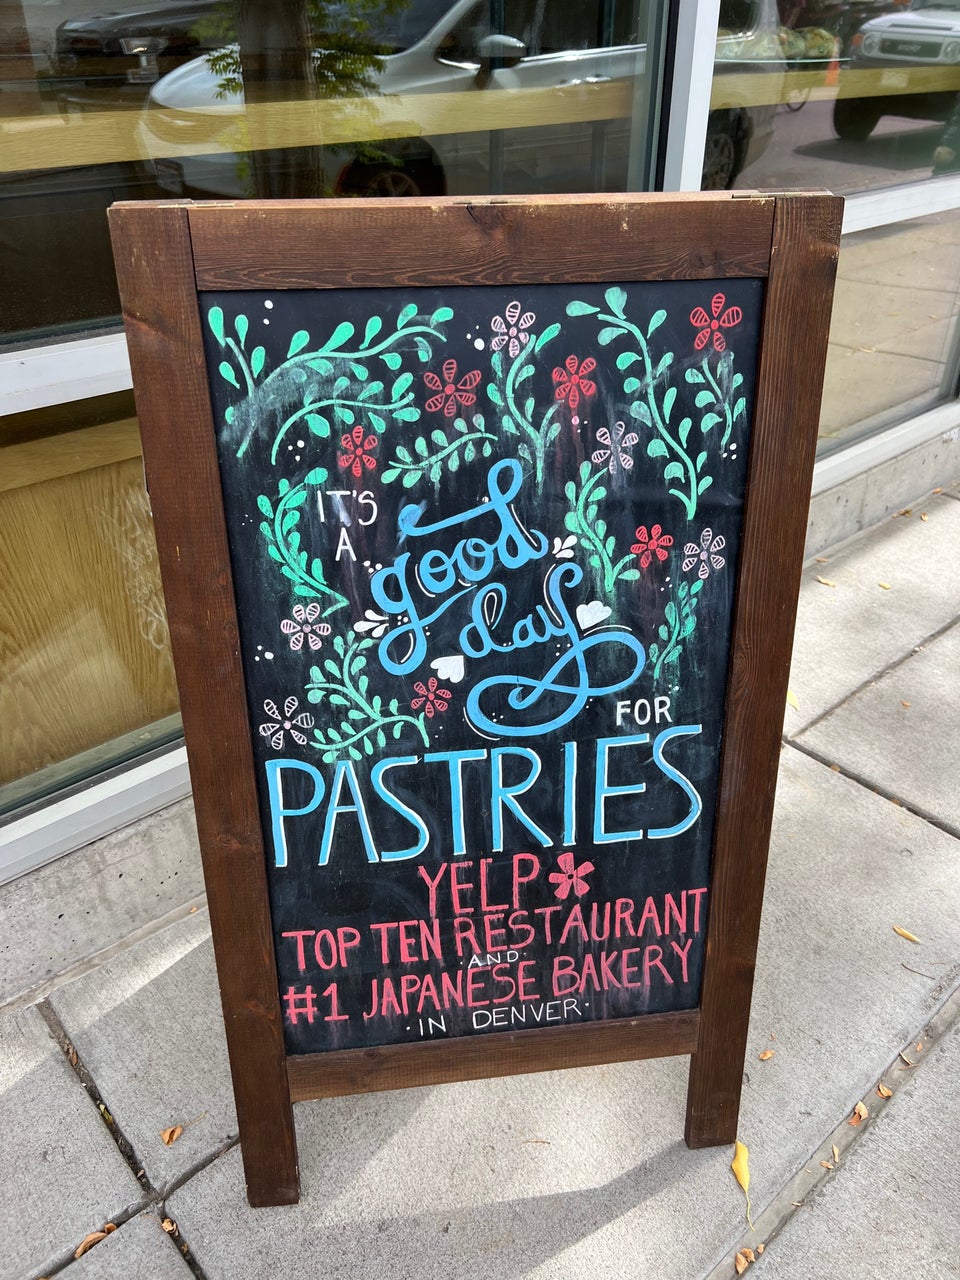 IT'S
A
good
day
FOR
PASTRIES
YELP
TOP TEN RESTAURANT
·AND·
#1 JAPANESE BAKERY
·IN DENVER·